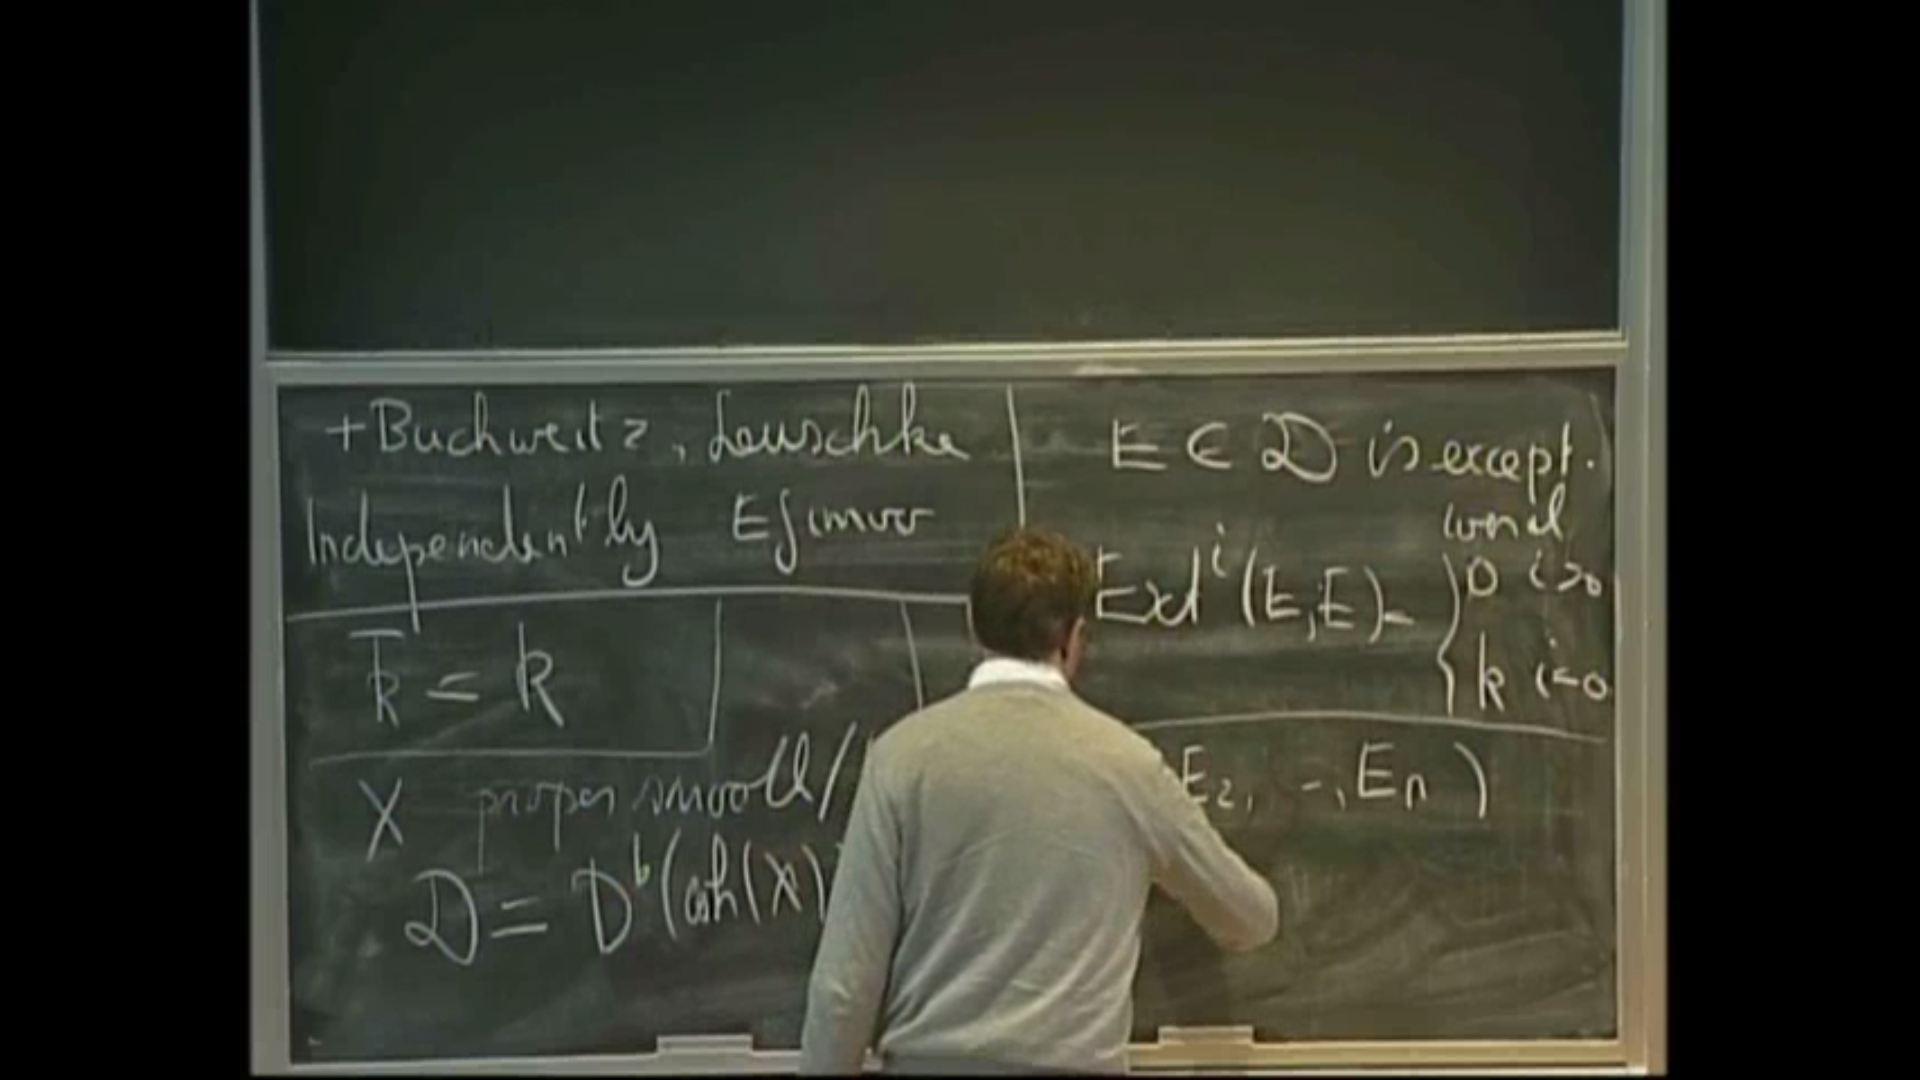 +Buchweitz, Leuschke
Independently Efimov
k̅ = k
X proper smooth/
D = D^b(coh(X)
E ∈ D is except.
ional
Ext^i(E,E) = { 0 i>0
k i=0
E_2, -, E_n )